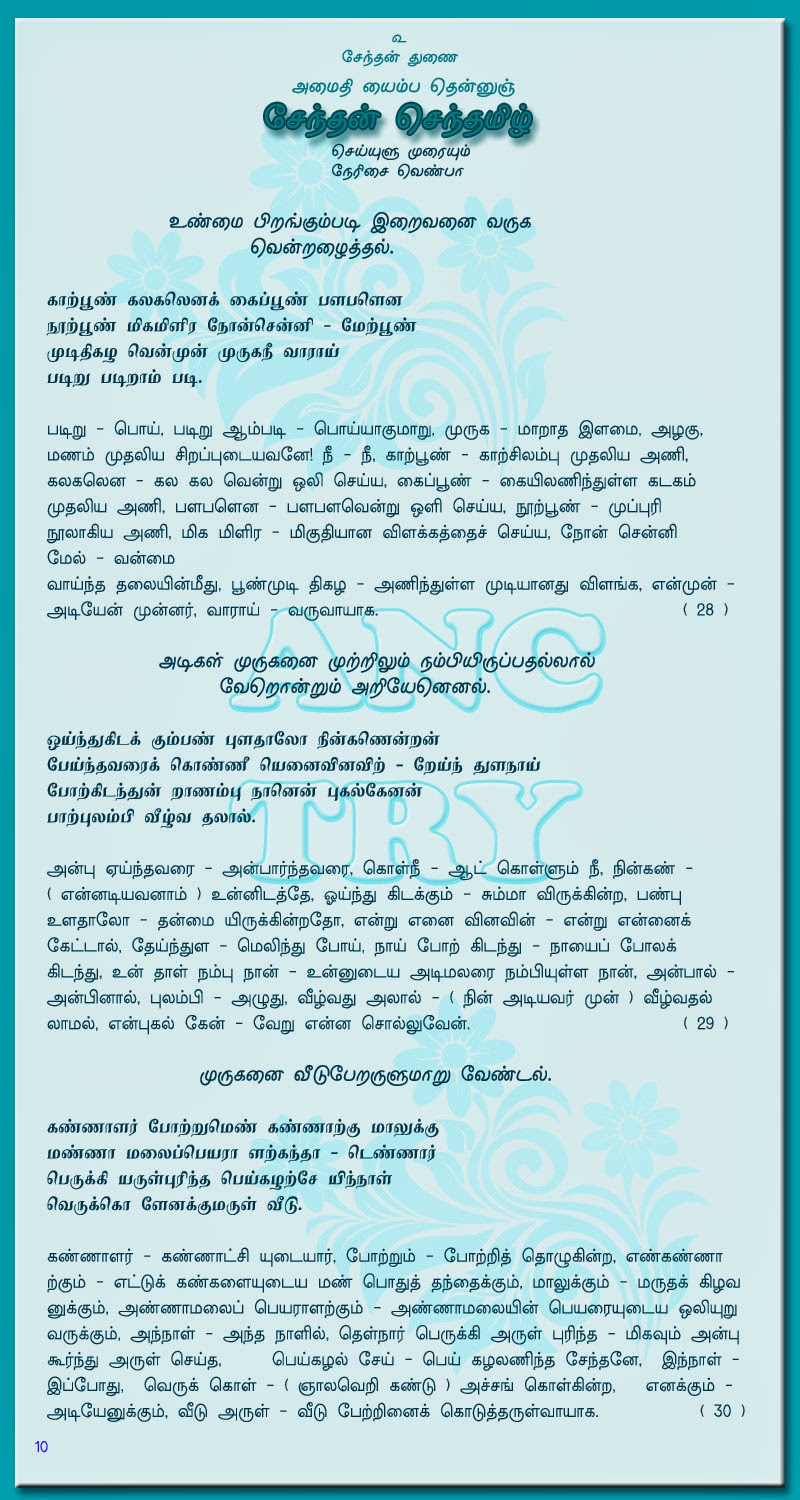 உ
சேந்தன் துணை
அமைதி யைம்ப தென்னுஞ்
சேந்தன் செந்தமிழ்
செய்யுளு முரையும்
நேரிசை வெண்பா
உண்மை பிறங்கும்படி இறைவனை வருக
வென்றழைத்தல்.
காற்பூண் கலகலெனக் கைப்பூண் பளபளென
நூற்பூண் மிகமிளிர நோன்சென்னி – மேற்பூண்
முடிதிகழ வென்முன் முருகநீ வாராய்
படிறு படிறாம் படி.
படிறு – பொய், படிறு ஆம்படி – பொய்யாகுமாறு, முருக – மாறாத இளமை, அழகு,
மணம் முதலிய சிறப்புடையவனே! நீ – நீ, காற்பூண் – காற்சிலம்பு முதலிய அணி,
கலகலென – கல கல வென்று ஒலி செய்ய, கைப்பூண் – கையிலணிந்துள்ள கடகம்
முதலிய அணி, பளபளென – பளபளவென்று ஒளி செய்ய, நூற்பூண் – முப்புரி
நூலாகிய அணி, மிக மிளிர – மிகுதியான விளக்கத்தைச் செய்ய, நோன் சென்னி
மேல் – வன்மை
வாய்ந்த தலையின்மீது, பூண்முடி திகழ – அணிந்துள்ள முடியானது விளங்க, என்முன் –
அடியேன் முன்னர், வாராய் – வருவாயாக. ( 28 )
அடிகள் முருகனை முற்றிலும் நம்பியிருப்பதல்லால்
வேறொன்றும் அறியேனெனல்.
ஒய்ந்துகிடக் கும்பண் புளதாலோ நின்கணென்றன்
பேய்ந்தவரைக் கொண்ணீ யெனைவினவிற் – றேய்ந் துளநாய்
போற்கிடந்துன் றாணம்பு நானென் புகல்கேனன்
பாற்புலம்பி வீழ்வ தலால்.
அன்பு ஏய்ந்தவரை – அன்பார்ந்தவரை, கொள்நீ – ஆட் கொள்ளும் நீ, நின்கண் –
( என்னடியவனாம் ) உன்னிடத்தே, ஓய்ந்து கிடக்கும் – சும்மா விருக்கின்ற, பண்பு
உளதாலோ – தன்மை யிருக்கின்றதோ, என்று எனை வினவின் – என்று என்னைக்
கேட்டால், தேய்ந்துள – மெலிந்து போய், நாய் போற் கிடந்து – நாயைப் போலக்
கிடந்து, உன் தாள் நம்பு நான் – உன்னுடைய அடிமலரை நம்பியுள்ள நான், அன்பால் –
அன்பினால், புலம்பி – அழுது, வீழ்வது அலால் – ( நின் அடியவர் முன் ) வீழ்வதல்
லாமல், என்புகல் கேன் – வேறு என்ன சொல்லுவேன். ( 29 )
முருகனை வீடுபேறருளுமாறு வேண்டல்.
கண்ணாளர் போற்றுமெண் கண்ணாற்கு மாலுக்கு
மண்ணா மலைப்பெயரா ளற்கந்தா – டெண்ணார்
பெருக்கி யருள்புரிந்த பெய்கழற்சே யிந்நாள்
வெருக்கொ ளேனக்குமருள் வீடு.
கண்ணாளர் – கண்ணாட்சி யுடையார், போற்றும் – போற்றித் தொழுகின்ற, எண்கண்ணா
ற்கும் – எட்டுக் கண்களையுடைய மண் பொதுத் தந்தைக்கும், மாலுக்கும் – மருதக் கிழவ
னுக்கும், அண்ணாமலைப் பெயராளற்கும் – அண்ணாமலையின் பெயரையுடைய ஒலியுறு
வருக்கும், அந்நாள் – அந்த நாளில், தெள்நார் பெருக்கி அருள் புரிந்த – மிகவும் அன்பு
கூர்ந்து அருள் செய்த, பெய்கழல் சேய் – பெய் கழலணிந்த சேந்தனே, இந்நாள் –
இப்போது, வெருக் கொள் – ( ஞாலவெறி கண்டு ) அச்சங் கொள்கின்ற, எனக்கும் –
அடியேனுக்கும், வீடு அருள் – வீடு பேற்றினைக் கொடுத்தருள்வாயாக. ( 30 )
10
ANC
TRY